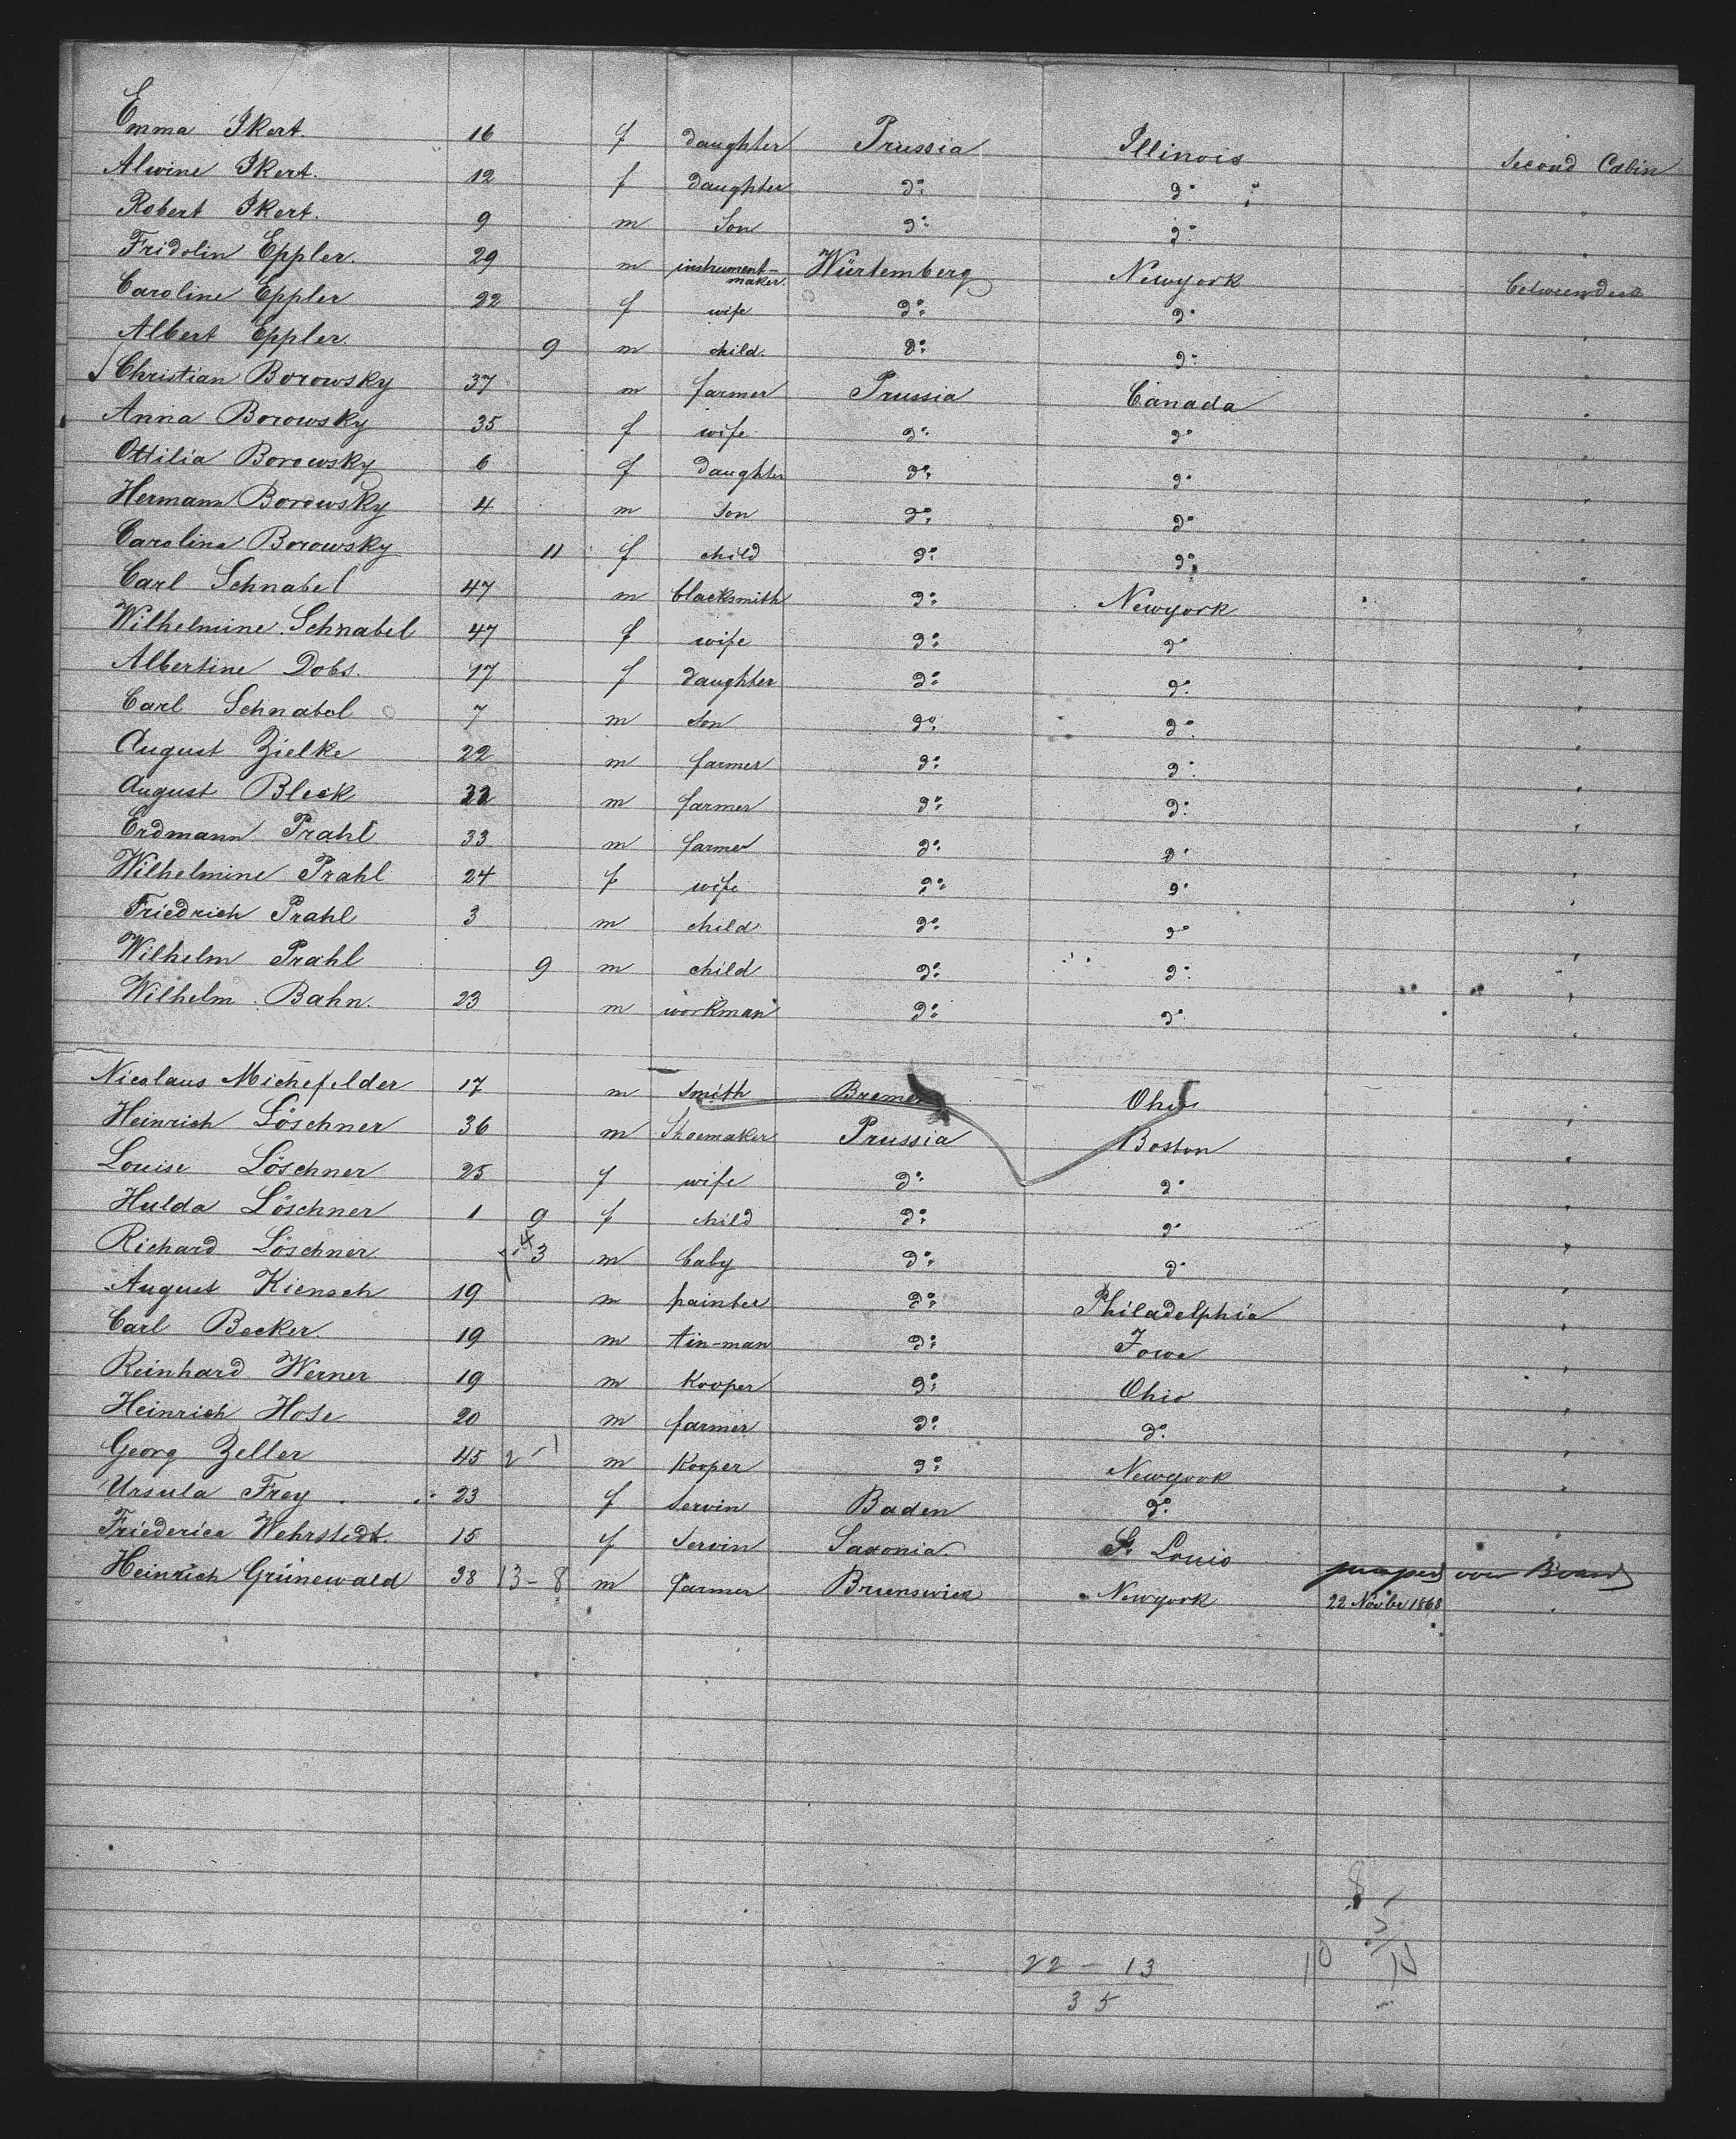 Emma Ikert. 16 f daughter Prussia Illinois Second Cabin
Alwine Ikert. 12 f daughter do do "
Robert Ikert. 9 m Son do do "
Fridolin Eppler. 29 m instrument-maker. Würtemberg Newyork betweendeck
Caroline Eppler 22 f wife do do "
Albert Eppler. 9 m child. do do "
Christian Borowsky 37 m farmer Prussia Canada "
Anna Borowsky 35 f wife do do "
Ottilia Borowsky 6 f daughter do do "
Hermann Borowsky 4 m Son do do "
Carolina Borowsky 11 f child do do "
Carl Schnabel 47 m blacksmith do Newyork "
Wilhelmine Schnabel 47 f wife do do "
Albertine Dobs. 17 f daughter do do "
Carl Schnabel 7 m son do do "
August Zielke 22 m farmer do do "
August Bleck m farmer do do "
Erdmann Prahl 33 m farmer do do "
Wilhelmine Prahl 24 f wife do do "
Friedrich Prahl 3 m child do do "
Wilhelm Prahl 9 m child do do "
Wilhelm Bahn. 23 m workman do do "
Nicolaus Michefelder 17 m smith Bremen Ohio "
Heinrich Löschner 36 m Shoemaker Prussia Boston "
Louise Löschner 25 f wife do do "
Hulda Löschner 1 9 f child do do "
Richard Löschner 4 3 m baby do do "
August Kiensch 19 m painter do Philadelphia "
Carl Becker. 19 m tin-man do Iowa "
Reinhard Werner 19 m Kooper do Ohio "
Heinrich Hose 20 m farmer do do "
Georg Zeller 45 2 - 1 m Kooper do Newyork "
Ursula Frey 23 f Servin Baden do "
Friederice Wehrstedt. 15 f Servin Saxonia. St. Louis
jumped over Board
Heinrich Grünewald 38 13 - 8 m farmer Brunswick Newyork 22 Novbr 1868 "
8
10
22 - 13
35